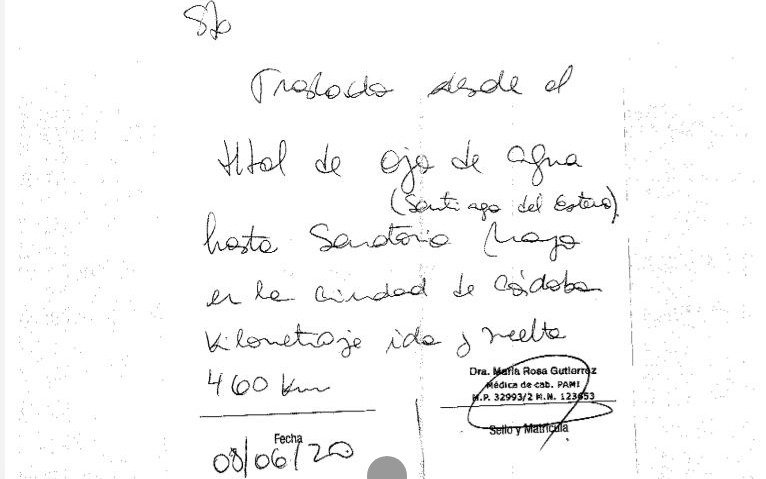 S/
Traslado desde el
Htal de ojo de agua
(Santiago del Estero)
hasta Sanatorio Mayo
en la ciudad de Córdoba
Kilometraje ida y vuelta
460 Km
Dra. María Rosa Gutierrez
Médica de cab. PAMI
M.P. 32993/2 M.N. 123653
Sello y Matrícula
Fecha
08/06/20